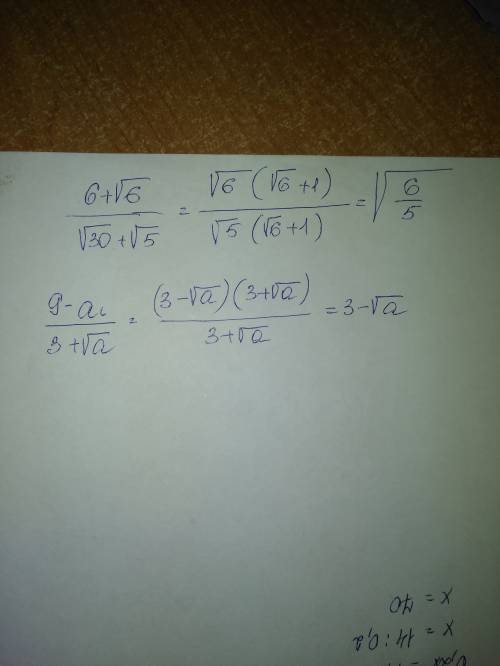 (6+√6)/(√30+√5) = (√6(√6+1))/(√5(√6+1)) = √(6/5)
(9-a)/(3+√a) = ((3-√a)(3+√a))/(3+√a) = 3-√a
x = 14 : 0,2
x = 70